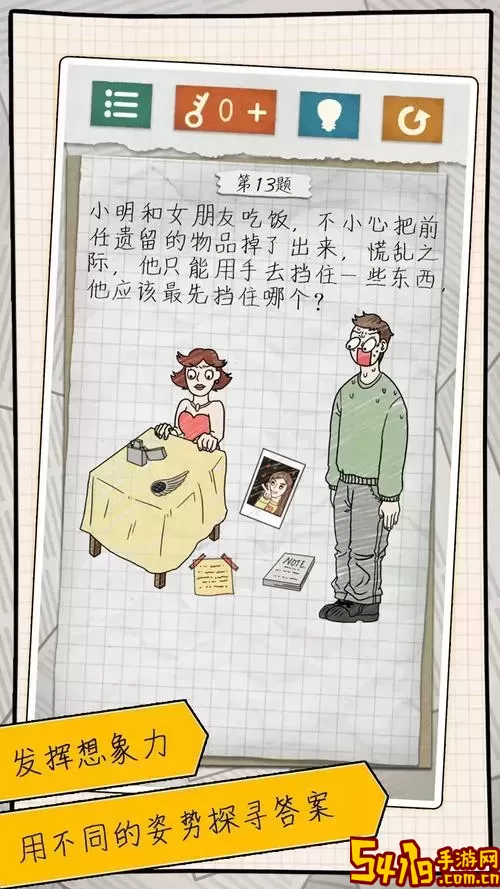 0 +
第13题
小明和女朋友吃饭，不小心把前
任遗留的物品掉了出来，慌乱之
际，他只能用手去挡住一些东西，
他应该最先挡住哪个？
NOTE
发挥想象力
用不同的姿势探寻答案
5419手游网
.com.cn